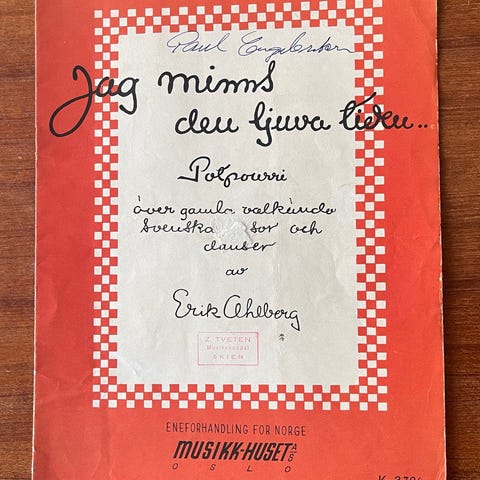 Paul
Jag minns
den ljuva tiden..
Potpourri
över gamla välkända
svenska sor och
danser
av
Erik Ahlberg
Z. TVETEN
Musikkhandel
SKIEN
ENEFORHANDLING FOR NORGE
MUSIKK-HUSET A/S
OSLO